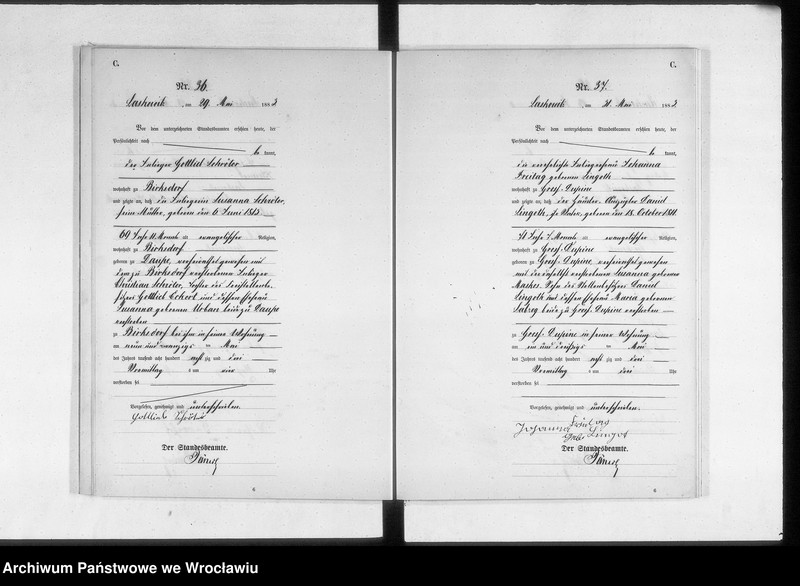 C.
Nr. 36.
am 29 Mai 1883
Vor dem unterzeichneten Standesbeamten erschien heute, der
Persönlichkeit nach
kannt,
der Inlieger Gottlieb Schröter
wohnhaft zu Birksdorf
und zeigte an, daß die Inliegerin Susanna Schröter,
seine Mutter, geboren den 6. Juni 1813
69 Jahr 11 Monate alt evangelischer Religion,
wohnhaft zu Birksdorf
geboren zu verheirathet gewesen mit
dem zu Birksdorf verstorbenen Inlieger
Christian Schröter, Tochter des
Gottlieb Eckert und dessen Ehefrau
Susanna geborenen Urban beide zu
verstorben
zu Birksdorf bei ihm in seiner Wohnung
am neun und zwanzigsten Mai
des Jahres tausend acht hundert achtzig und drei
Vormittag um vier Uhr
verstorben sei
Vorgelesen, genehmigt und unterschrieben.
Gottlieb Schröter
Der Standesbeamte.
6
C.
Nr. 37.
am 31 Mai 1883
Vor dem unterzeichneten Standesbeamten erschien heute, der
Persönlichkeit nach
kannt,
die verehelichte Johanna
Freitag geborene Lingoth
wohnhaft zu Groß-Dupine
und zeigte an, daß der Häusler-Auszügler Daniel
Lingoth, ihr Vater, geboren den 18. October 1811
71 Jahr 7 Monate alt evangelischer Religion,
wohnhaft zu Groß-Dupine
geboren zu Groß-Dupine, verheirathet gewesen
mit der daselbst verstorbenen Susanna geborenen
Sohn des Stellenbesitzers Daniel
Lingoth und dessen Ehefrau Maria geborenen
beide zu Groß-Dupine verstorben
zu Groß-Dupine in seiner Wohnung
am ein und dreißigsten Mai
des Jahres tausend acht hundert achtzig und drei
Vormittag um drei Uhr
verstorben sei
Vorgelesen, genehmigt und unterschrieben.
Johanna Freitag
geb. Lingot
Der Standesbeamte.
6
Archiwum Państwowe we Wrocławiu